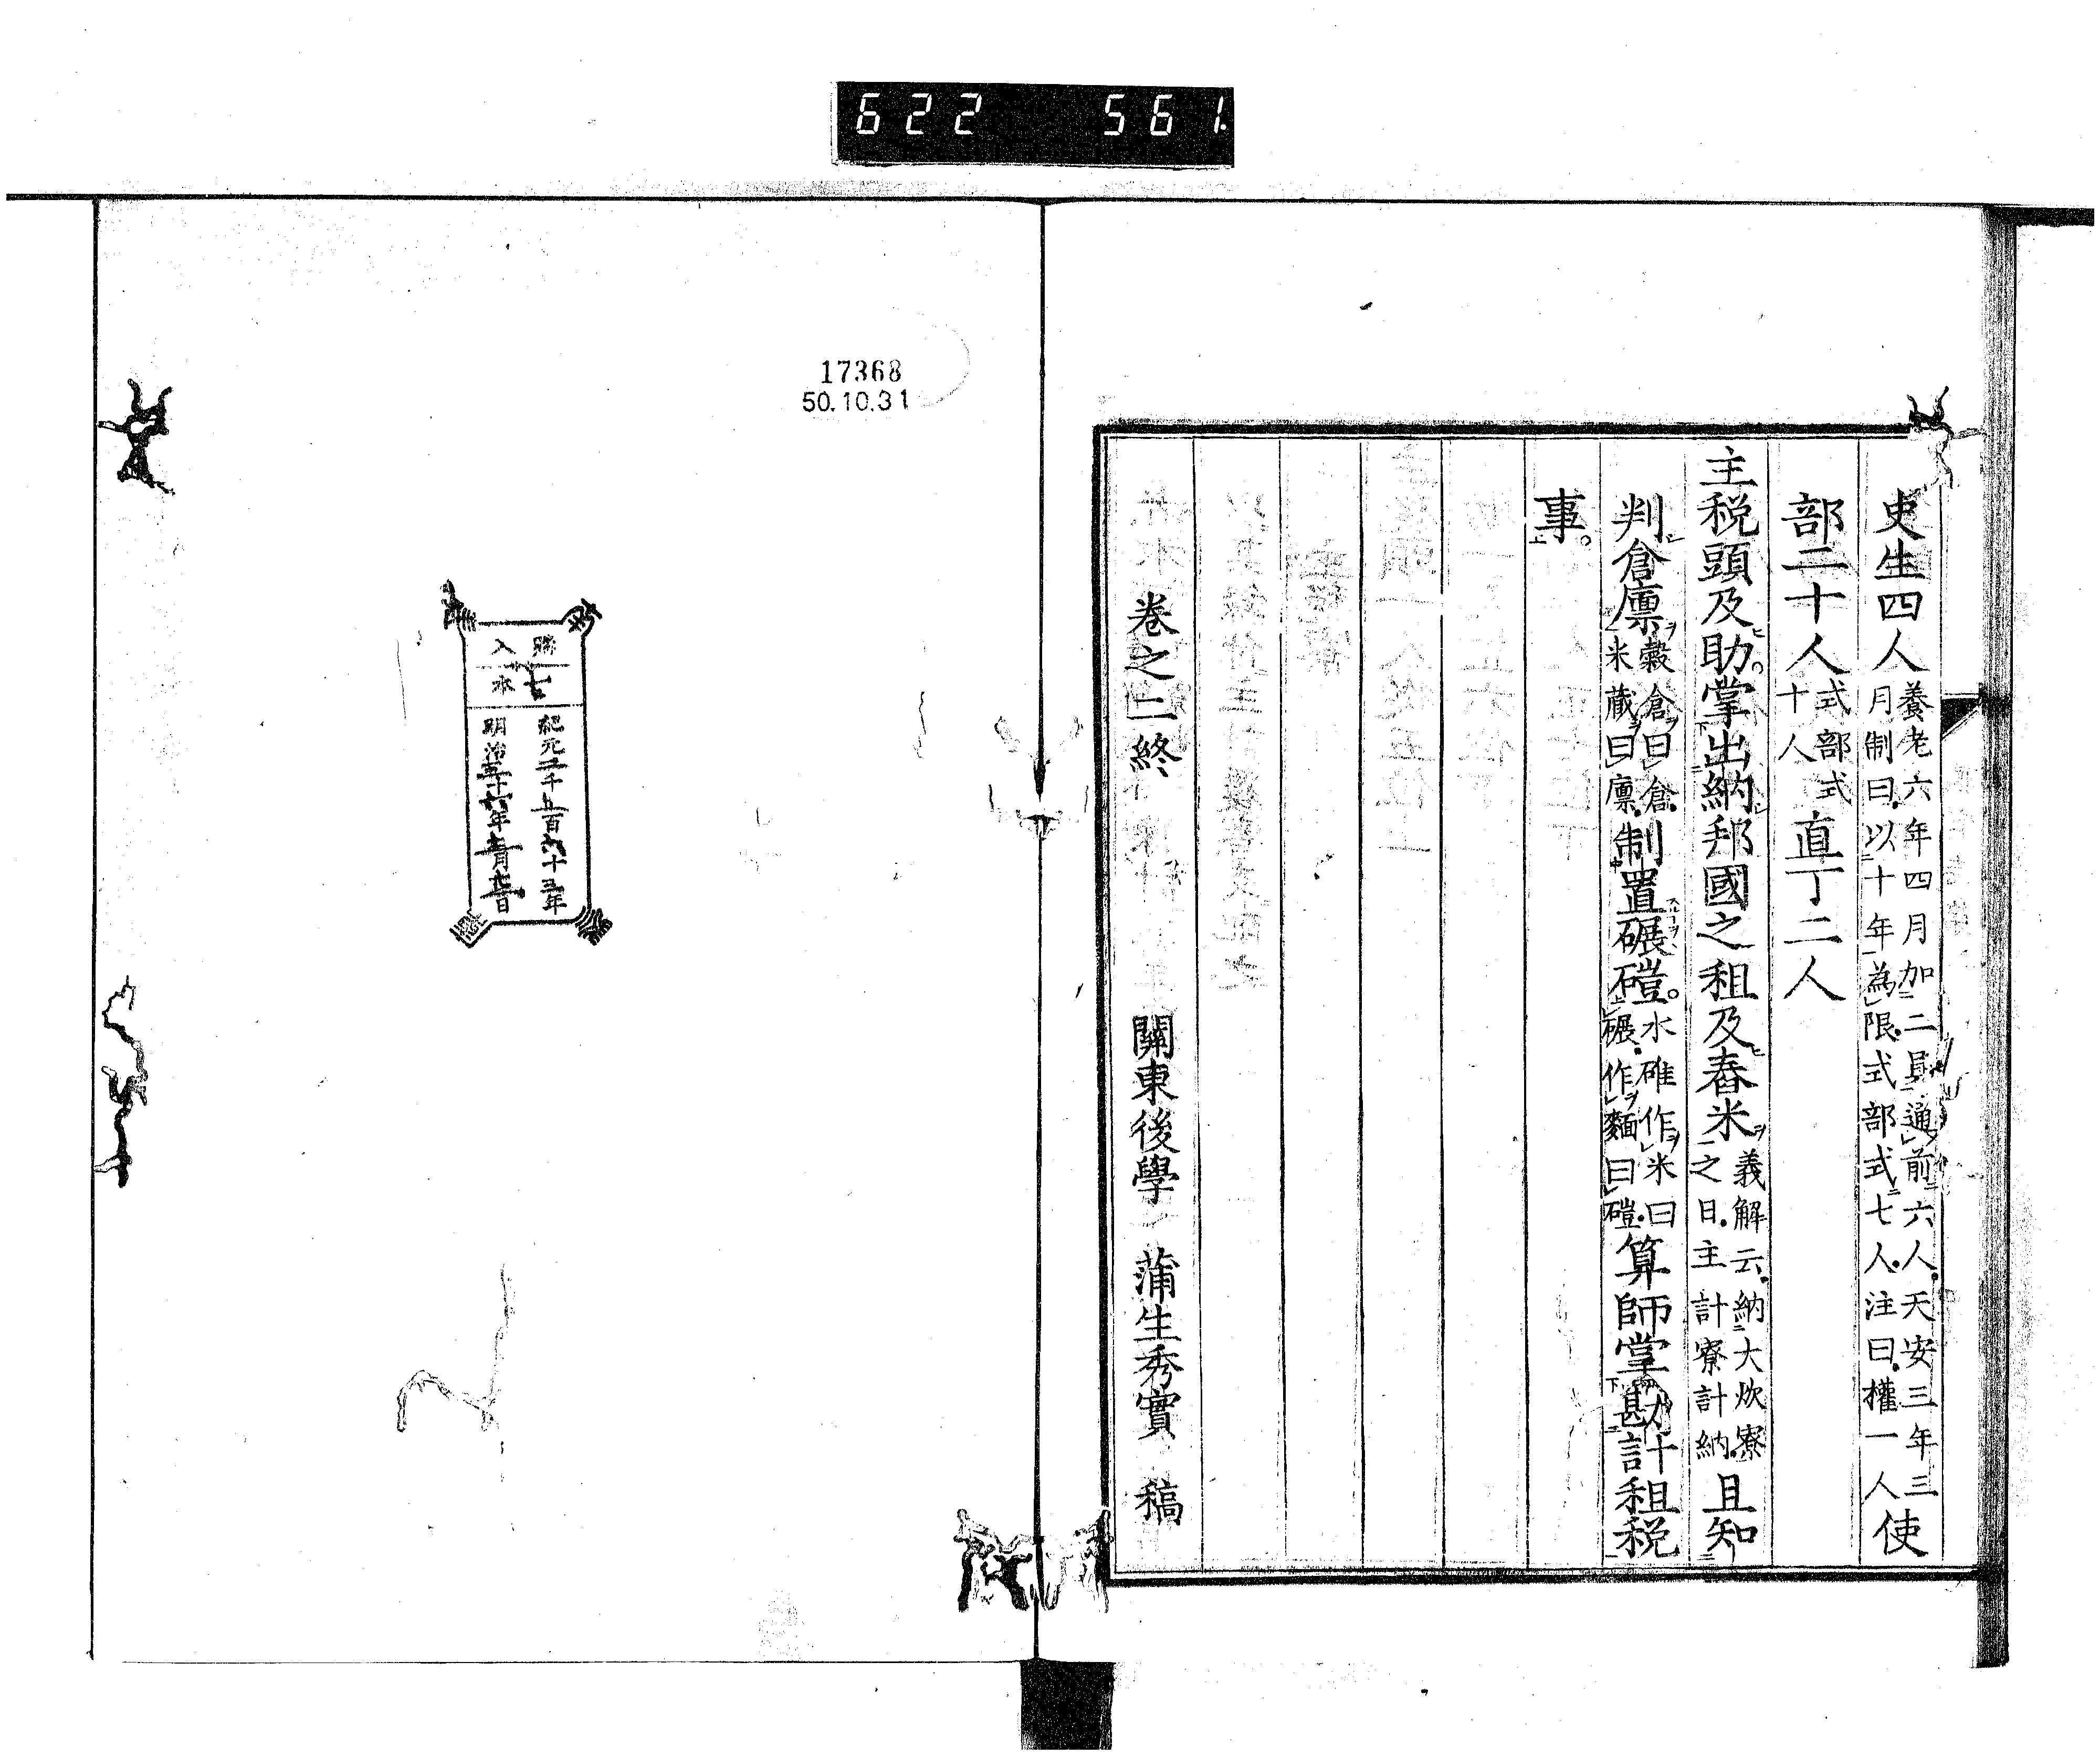 622 561.
史生四人養老六年四月加二員通前六人天安三年三月制曰以十年為限式部式七人注曰權一人使
部二十人式部式十人直丁二人
主税頭及助掌出納邦國之租及舂米義解云納大炊寮之日主計寮計納且知
判倉廩穀倉曰倉米蔵曰廩制置碾磑水碓作米曰碾作麵曰磑算師掌勘計租税
事
卷之二終 關東後學 蒲生秀實 稿
17368
50.10.31
購入
紀元二千五百六十三年